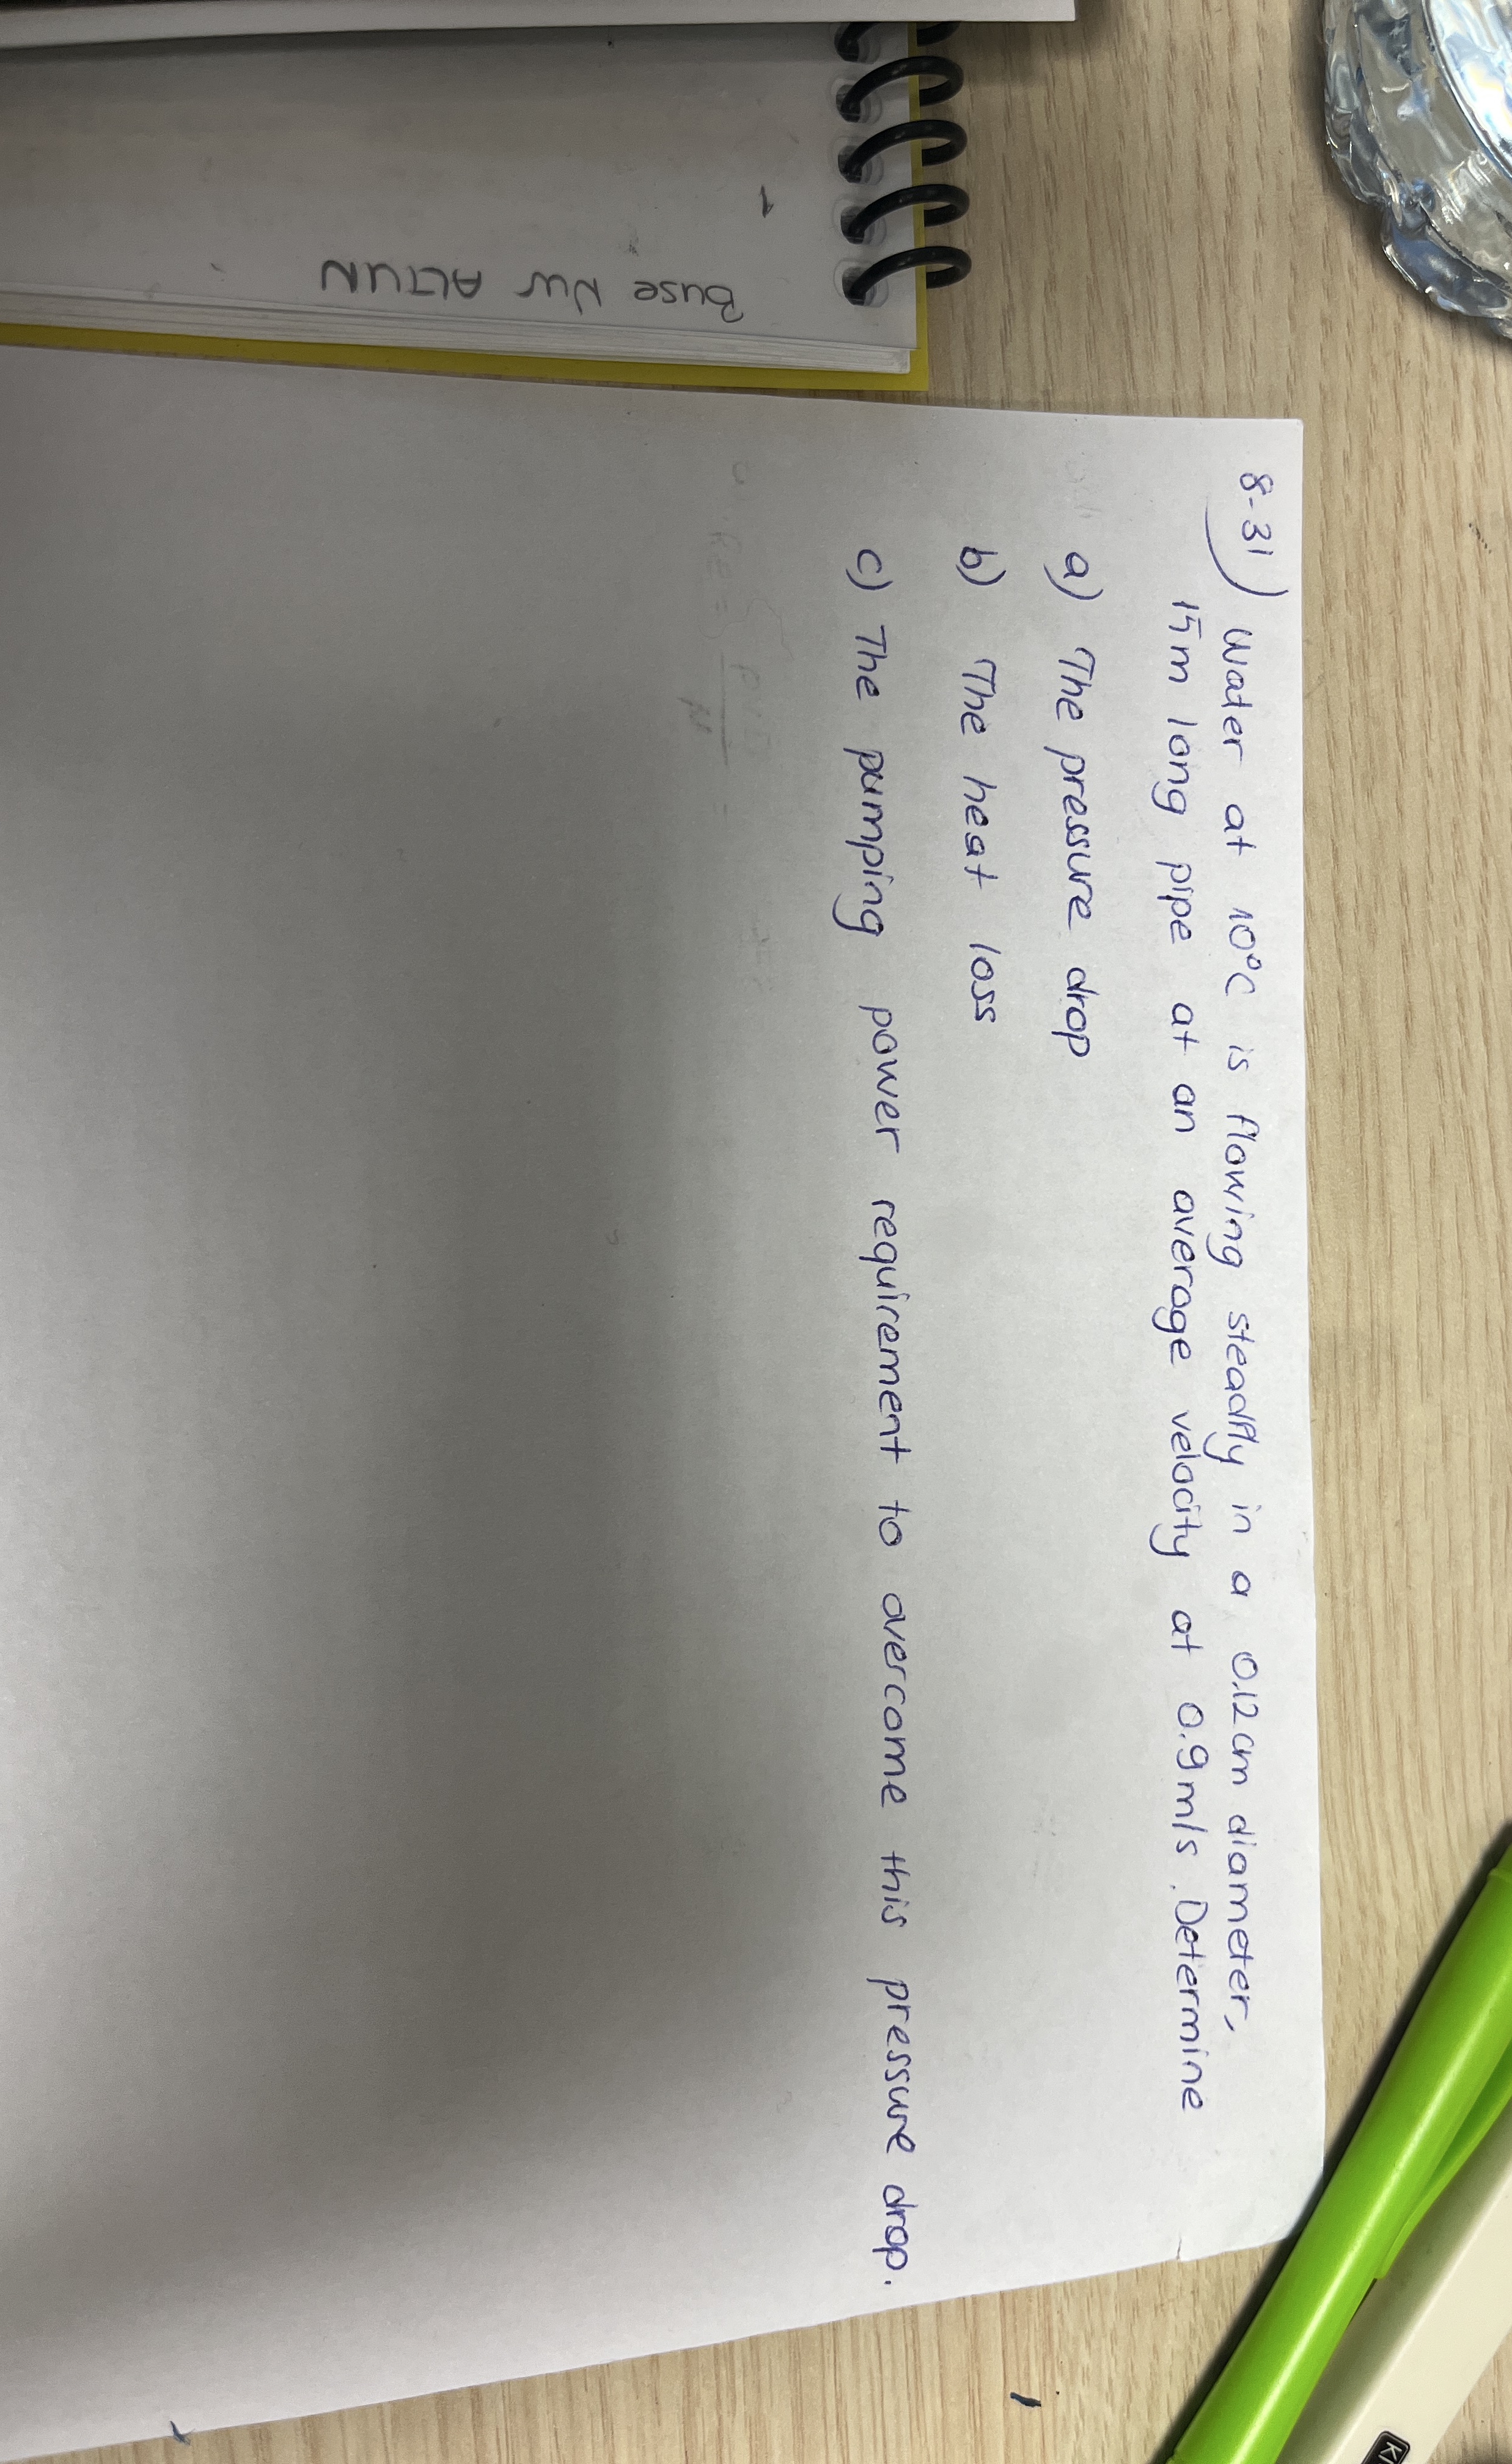 8-31) Water at 10°C is flowing steadly in a 0.12 cm diameter,
15m long pipe at an average velocity at 0.9 m/s. Determine
a) The pressure drop
b) The heat loss
c) The pumping power requirement to overcome this pressure drop.
Buse Nur ALTUN
1